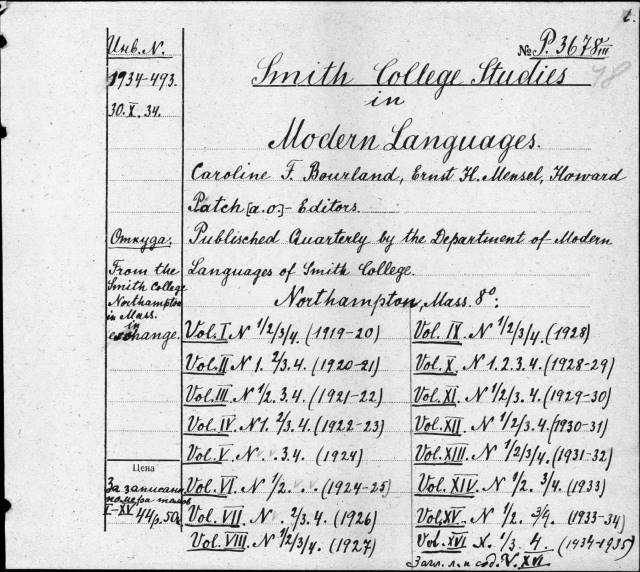 1.
Инв. N.
1934-493.
30.X.34.
№ P. 3678/III
48
Smith College Studies
in
Modern Languages.
Caroline F. Bourland, Ernst H. Mensel, Howard
Patch [a.o.] - Editors.
Откуда:
From the
Smith College
Northampton
in Mass.
in
exchange.
Publisched Quarterly by the Department of Modern
Languages of Smith College.
Northampton, Mass. 8º:
Vol. I N 1/2/3/4. (1919-20)
Vol. II N 1. 2/3. 4. (1920-21)
Vol. III. N 1/2. 3. 4. (1921-22)
Vol. IV. N 1. 2/3. 4. (1922-23)
Vol. V. N . . 3. 4. (1924)
Vol. VI N 1/2. . . (1924-25)
Vol. VII N 2/3. 4. (1926)
Vol. VIII. N 1/2/3/4. (1927)
Vol. IX. N 1/2/3/4. (1928)
Vol. X. N 1. 2. 3. 4. (1928-29)
Vol. XI. N 1/2/3. 4. (1929-30)
Vol. XII N 1/2/3. 4. (1930-31)
Vol. XIII. N 1/2/3/4. (1931-32)
Vol. XIV. N 1/2. 3/4. (1933)
Vol. XV. N 1/2. 3/4. (1933-34)
Vol. XVI N. 1/3. 4. (1934-1935)
Загл. л. и сод. V. XVI
Цена
За записан.
номера томов
I-XV 44р. 50к